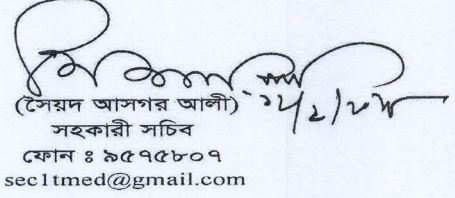 (সৈয়দ আসগর আলী)
সহকারী সচিব
ফোন ঃ ৯৫৭৫৮০৭
sec1tmed@gmail.com